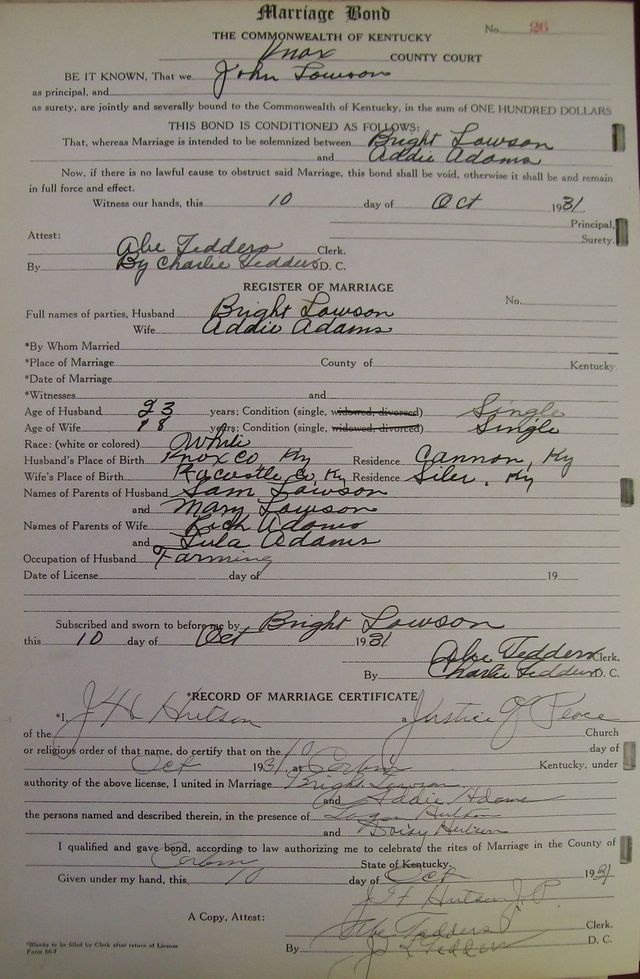 Marriage Bond
No. 26
THE COMMONWEALTH OF KENTUCKY
Knox COUNTY COURT
BE IT KNOWN, That we John Lawson
as principal, and
as surety, are jointly and severally bound to the Commonwealth of Kentucky, in the sum of ONE HUNDRED DOLLARS
THIS BOND IS CONDITIONED AS FOLLOWS:
That, whereas Marriage is intended to be solemnized between Bright Lawson
and Addie Adams
Now, if there is no lawful cause to obstruct said Marriage, this bond shall be void, otherwise it shall be and remain
in full force and effect.
Witness our hands, this 10 day of Oct 1931
Principal,
Surety.
Attest:
Abe Tedders Clerk.
By By Charlie Tedders D. C.
REGISTER OF MARRIAGE
No.
Full names of parties, Husband Bright Lawson
Wife Addie Adams
*By Whom Married
*Place of Marriage County of Kentucky.
*Date of Marriage
*Witnesses and
Age of Husband 23 years; Condition (single, widowed, divorced) Single
Age of Wife 18 years; Condition (single, widowed, divorced) Single
Race: (white or colored) White
Husband's Place of Birth Knox Co Ky Residence Cannon, Ky
Wife's Place of Birth Rocastle Co, Ky Residence Siler, Ky
Names of Parents of Husband Sam Lawson
and Mary Lawson
Names of Parents of Wife Rich Adams
and Lula Adams
Occupation of Husband Farming
Date of License day of 19
Subscribed and sworn to before me by Bright Lawson
this 10 day of Oct 1931
Abe Tedders Clerk.
By Charlie Tedders D. C.
*RECORD OF MARRIAGE CERTIFICATE
*I, J H Hutson a Justice of Peace
of the Church
or religious order of that name, do certify that on the 10 day of
Oct 1931, at Corbin Kentucky, under
authority of the above license, I united in Marriage Bright Lawson
and Addie Adams
the persons named and described therein, in the presence of Logan Hutson
and Daisy Hutson
I qualified and gave bond, according to law authorizing me to celebrate the rites of Marriage in the County of
Corbin State of Kentucky.
Given under my hand, this 10 day of Oct 1931
J H Hutson J. P.
A Copy, Attest: Abe Tedders Clerk.
By Tedders D. C.
*Blanks to be filled by Clerk after return of License
Form 58-7